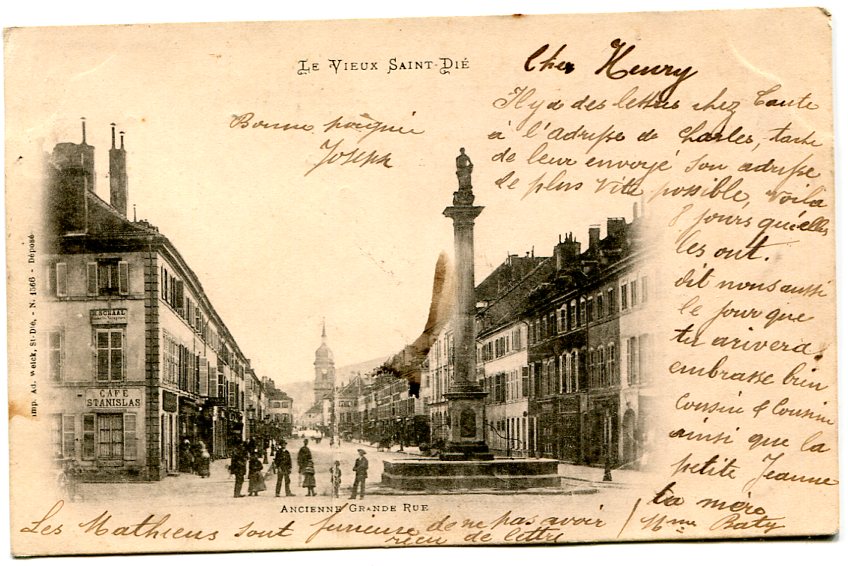 Le Vieux Saint-Dié
Cher Henry
Il y a des lettres chez Tante
à l'adresse de Charles, tache
de leur envoyé son adresse
le plus vite possible, voila
8 jours qu'elles
les ont.
dit nous aussi
le jour que
tu arivera
embrasse bien
cousin & cousine
ainsi que la
petite Jeanne
ta mère
Mme Baty
Bonne poignie
Joseph
Imp. Ad. Weick, St-Dié, - N. 1566 - Déposé
SCHAAL
CAFÉ
STANISLAS
Ancienne Grande Rue
Les Mathieus sont furieuse de ne pas avoir
rèçu de lettre